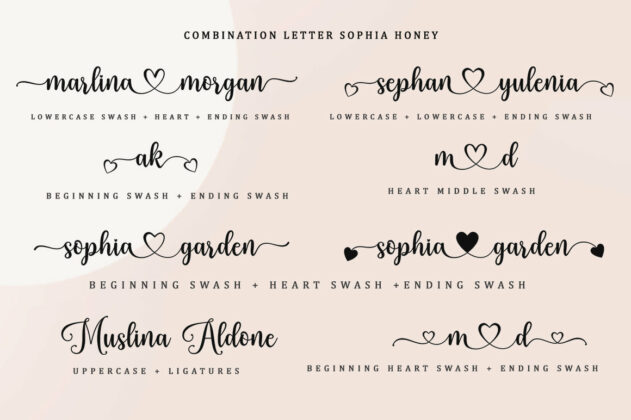 COMBINATION LETTER SOPHIA HONEY
marlina morgan
LOWERCASE SWASH + HEART + ENDING SWASH
sephan yulenia
LOWERCASE + LOWERCASE + ENDING SWASH
ak
BEGINNING SWASH + ENDING SWASH
m d
HEART MIDDLE SWASH
sophia garden
sophia garden
BEGINNING SWASH + HEART SWASH +ENDING SWASH
Muslina Aldone
UPPERCASE + LIGATURES
m d
BEGINNING HEART SWASH + ENDING SWASH